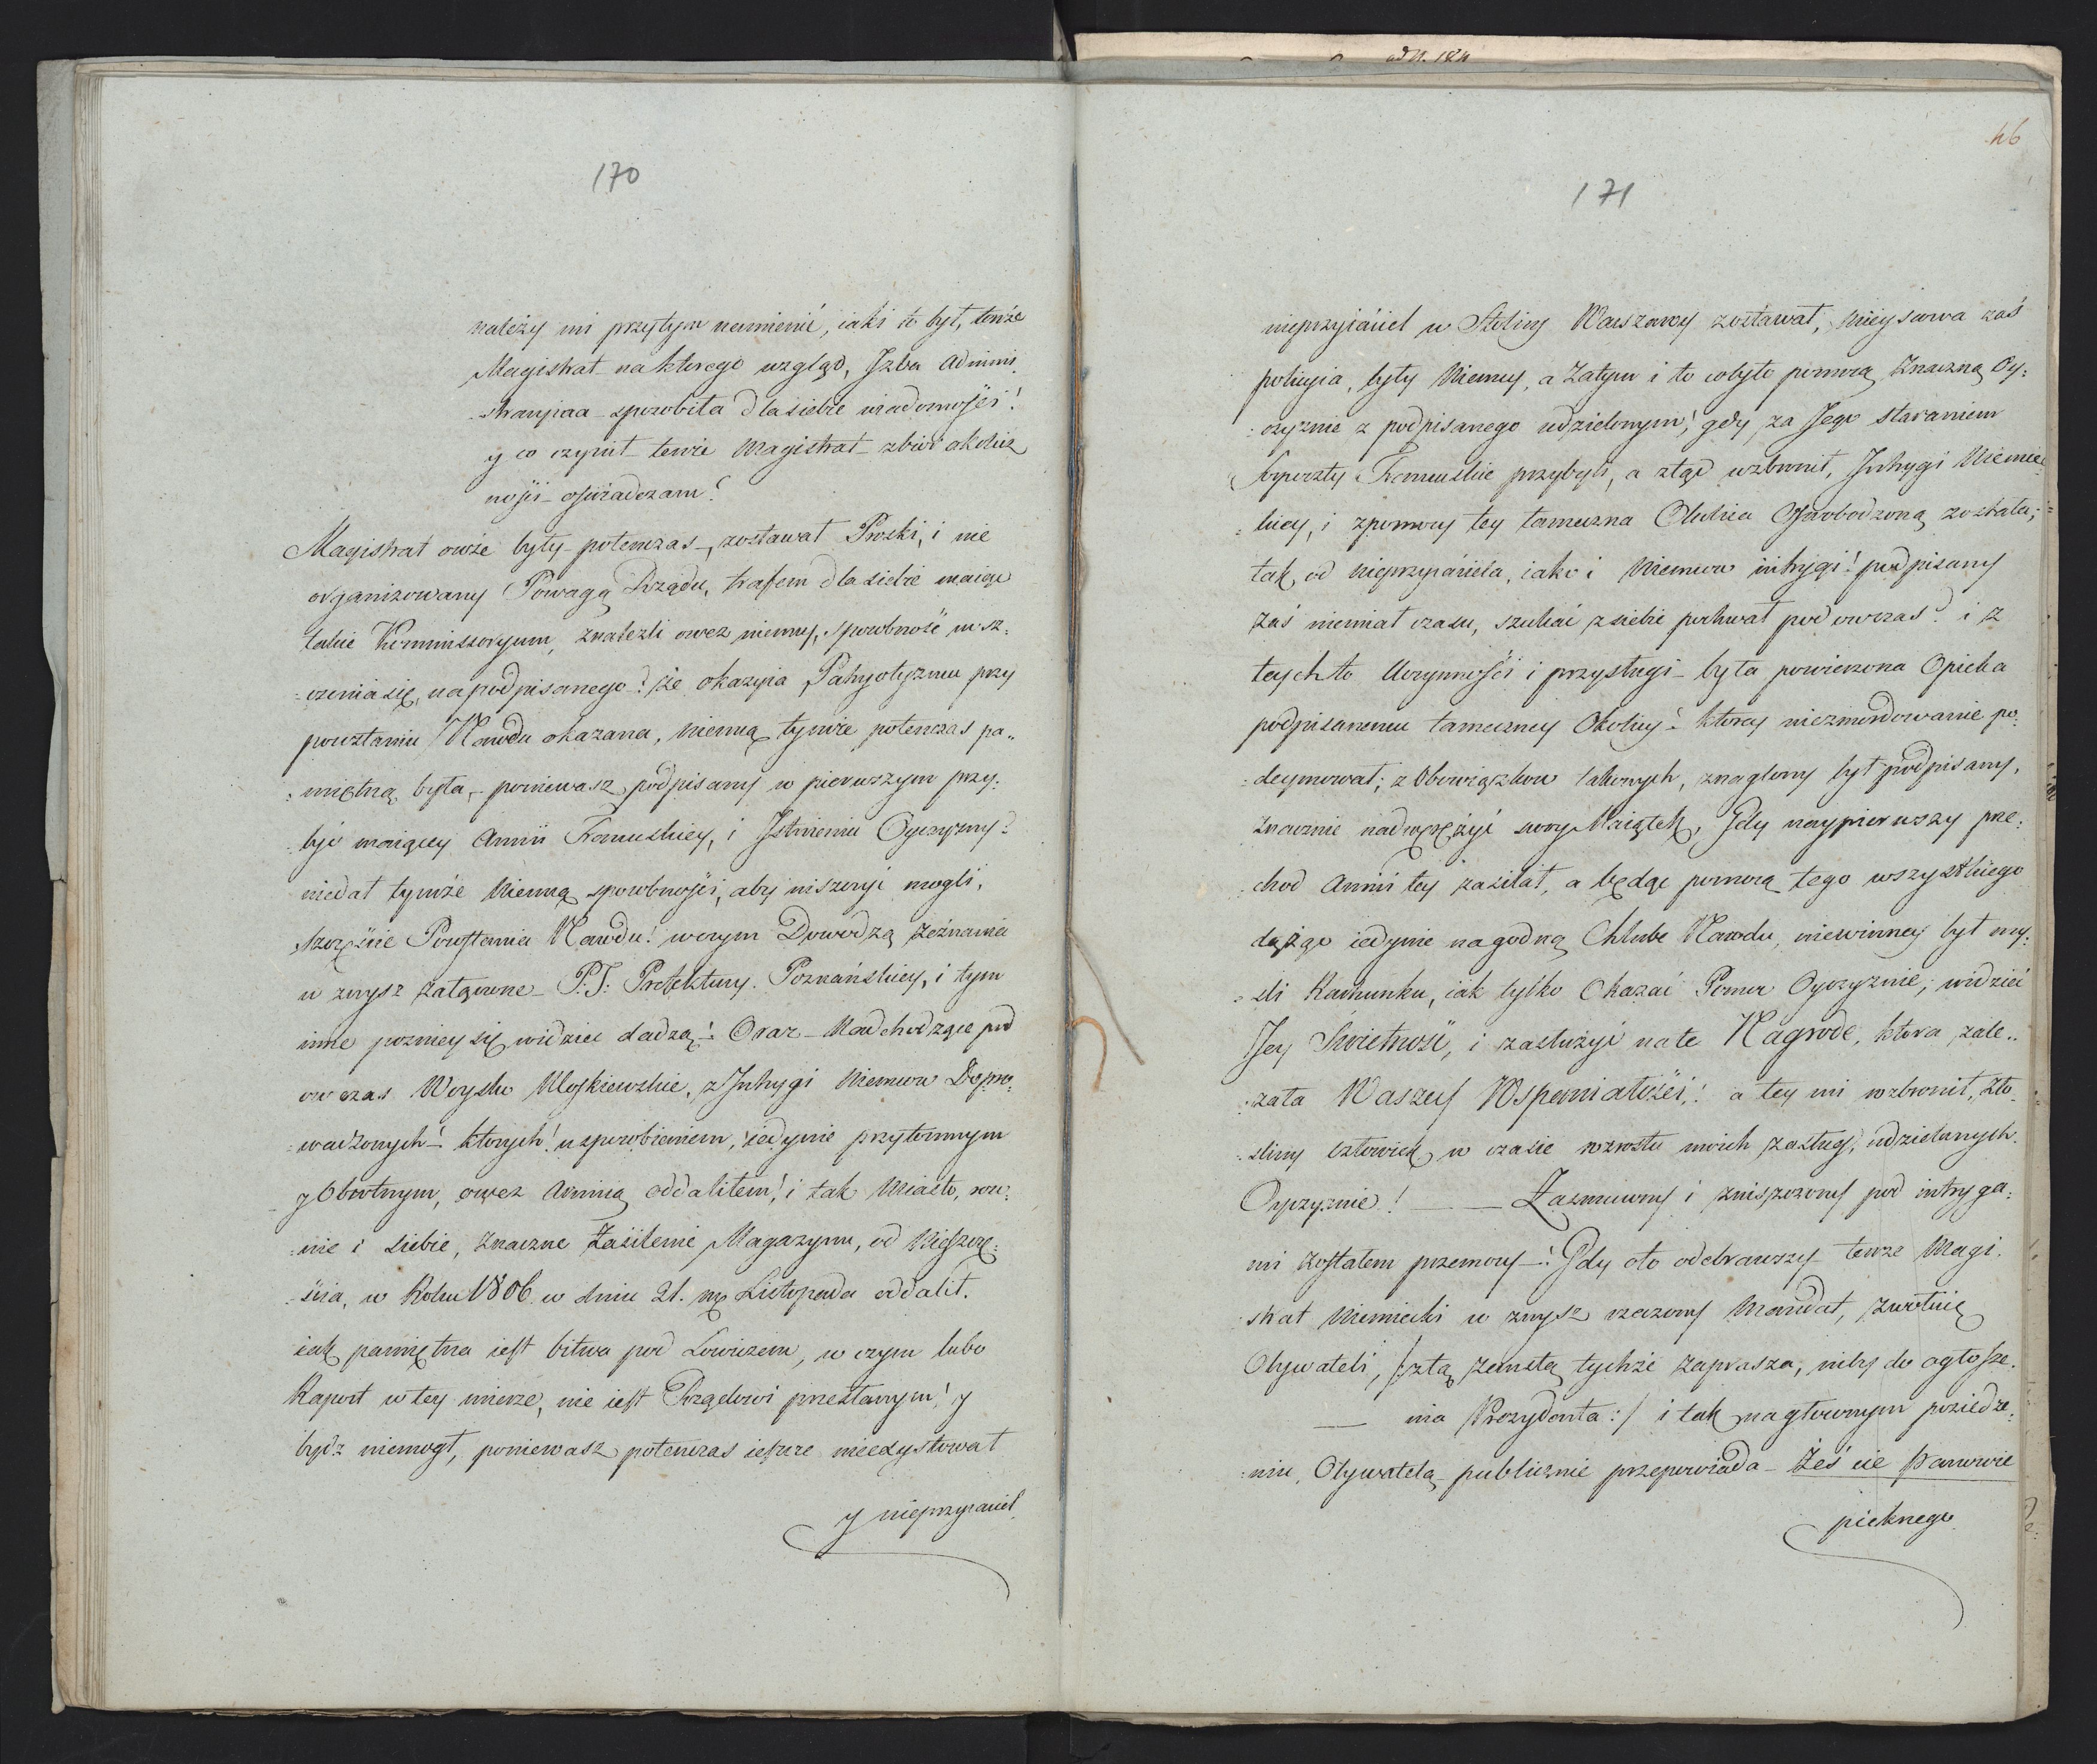 170
należy mi przytym namienić, iaki to był, tenże
Magistrat na ktorego wzgląd, Jzba Admini
stracyina sposobiła dla siebie wiadomości!
y co czynił tenże Magistrat zbiór okolicz
ności oświadczam!
Magistrat owże były potenczas, zostawał Pruski, i nie
organizowany Powagą Rządu, trafem dla siebie maiąc
takie Kommissoryum, znaleźli owez niemcy, sposobność msz:
:czenia się, na podpisanego! że okazyia Patryotyzmu przy
powstaniu Narodu okazana, niemcą tymże potenczas pa„
:miętną była, poniewasz podpisany w pierwszym przy:
:być maiącey Armii Francuskiey, i Jstnieniu Oyczyzny!
niedał tymże Niemcą sposobności, aby niszczyć mogli,
szczęście Powstania Narodu! w czym Dowodzą zeznania
w zwysz załączone P.J: Prefektury Poznańskiey, i tym
inne pozniey się widziec dadzą! Oraz Nadchodzące pod
ow czas Woysko Moskiewskie, z Jntrygi Niemcow Dopro:
:wadzonych! ktorych! usposobieniem, iedynie przytomnym
y Obrotnym, owez Armią oddaliłem! i tak Miasto, row:
:nie i siebie, znaczne Zasilenie Magazynu, od Nieszczę:
:ścia, w Roku 1806 w dniu 21. Listopada oddalił.
iak pamiętna iest bitwa pod Łowiczem, w czym lubo
Raport w tey mierze, nie iest Rządowi przesłanym! y
bydz niemogł, poniewasz potenczas ieszcze nieexystował
y nieprzyiaciel
46
171
nieprzyiaciel w Stolicy Warszawy zostawał, mieyscowa zaś
policyia, były Niemcy, a Zatym i to cobyło pomocą znaczną Oy:
:czyznie z podpisanego udzielonym! gdy za Jego staraniem
Forpoczty Francuskie przybyli, a ztąd wzbronił, Jntrygi Niemie
:ckiey, i zpomocy tey tameczna Okolica Oswobodzoną została;
tak, od nieprzyiaciela, iako i Niemcow intrygi! podpisany
zaś niemiał czasu, szukać z siebie pochwał pod owczas! i z
tych to Uczynności i przysługi była powierzona Opieka
podpisanemu tameczney Okolicy! ktorey niezmordowanie po:
:deymował; z Obowiązkow takowych, znaglony był podpisany,
znacznie nadwyrężyć swoy Maiątek, Gdy naypierwszy prze:
:chod Armii tey zasilał, a będąc pomocą tego wszystkiego
dążąc iedynie na godną Chlube Narodu, niewinney był my:
:sli Rachunku, iak tylko Okazać Pomoc Oyczyznie; widzieć
Jey Świetność, i zasłużyć na te Nagrode, ktora zale„
:zała Waszey Wspaniałości! a tey mi wzbronił, zło
:sliwy człowiek w czasie wzrostu moich zasług, udzielanych
Oyczyznie! — — Zasmucony i zniszczony pod intryga:
mi zostałem przemocy! Gdy oto odebrawszy tenze Magi
:strat Niemiecki w zwysz rzeczony Mandat, zwołuię
Obywateli, /:złą zemstą tychże zaprasza, niby do ogłosze
— nia Prezydenta:/ i tak na głownym posiedze:
:niu, Obywatelą publicznie przepowiada Żeś cie Panowie
pieknego